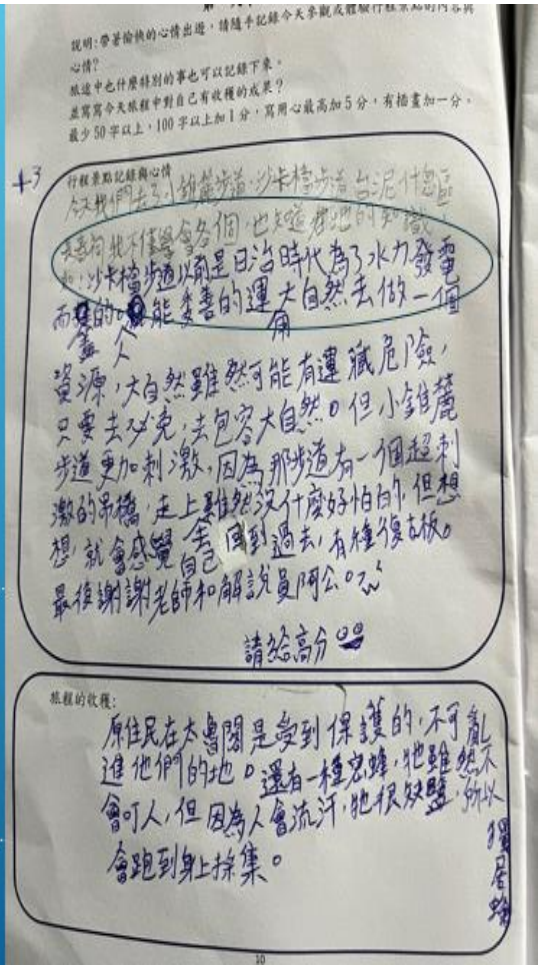 說明:帶著愉快的心情出遊,請隨手記錄今天參觀或體驗行程景點的內容與
心情?
旅途中也什麼特別的事也可以記錄下來。
並寫寫今天旅程中對自己有收穫的成果?
最少50字以上,100字以上加1分,寫用心最高加5分,有插畫加一分。
+3
行程景點記錄與心情
今天我們去了小錐麓步道,沙卡礑步道 台泥
我不僅學會各個,也知道 的知識,
如,沙卡礑步道以前是日治時代為了水力發電
而蓋的。人能妥善的運用大自然去做一個
資源,大自然雖然可能有蘊藏危險,
只要去避免,去包容大自然。但小錐麓
步道更加刺激,因為那步道有一個超刺
激的吊橋,走上雖然沒什麼好怕的,但想
想,就會感覺自己回到過去,有種復古板。
最後謝謝老師和解說員阿公。
請給高分
旅程的收穫:
原住民在太魯閣是受到保護的,不可亂
進他們的地。還有一種蜜蜂,牠雖然不
會叮人,但因為人會流汗,牠很缺鹽,所以
會跑到身上採集。
獨居蜂
10